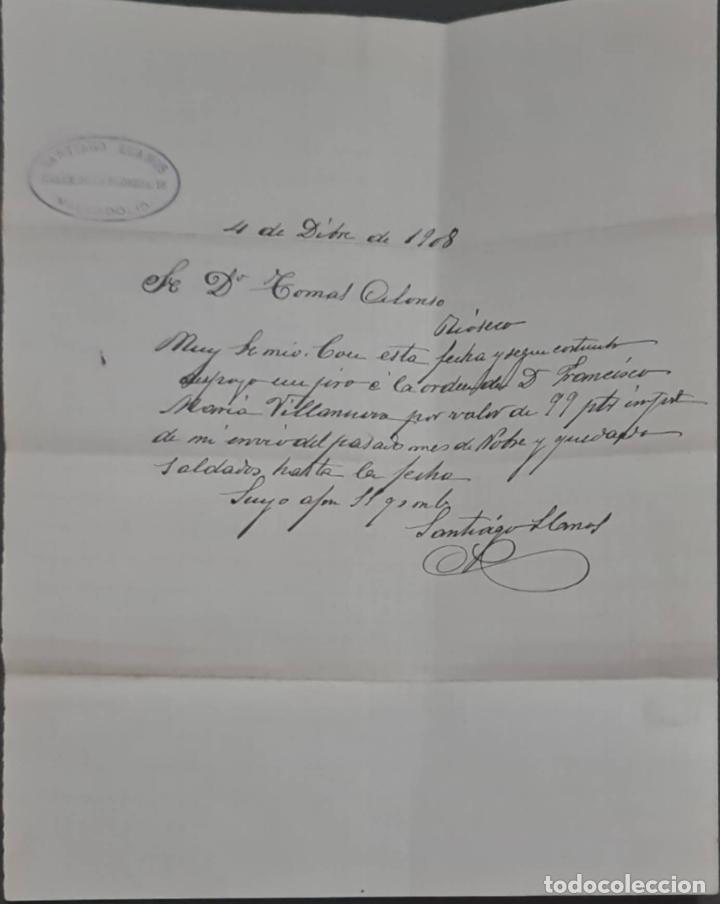 SANTIAGO LLANOS
VALLADOLID
4 de Dibre de 1908
Sr Dn Tomas Alonso
Rioseco
Muy Sr mio. Con esta fecha y segun costumbre
un jiro á la orden de Dn Francisco
Maria Villanueva por valor de 99 pts import
de mi envio del pasado mes de Nobre y quedando
saldados hasta la fecha
Suyo afmo SS q s m b
Santiágo Llanos
todocoleccion
todocoleccion.net